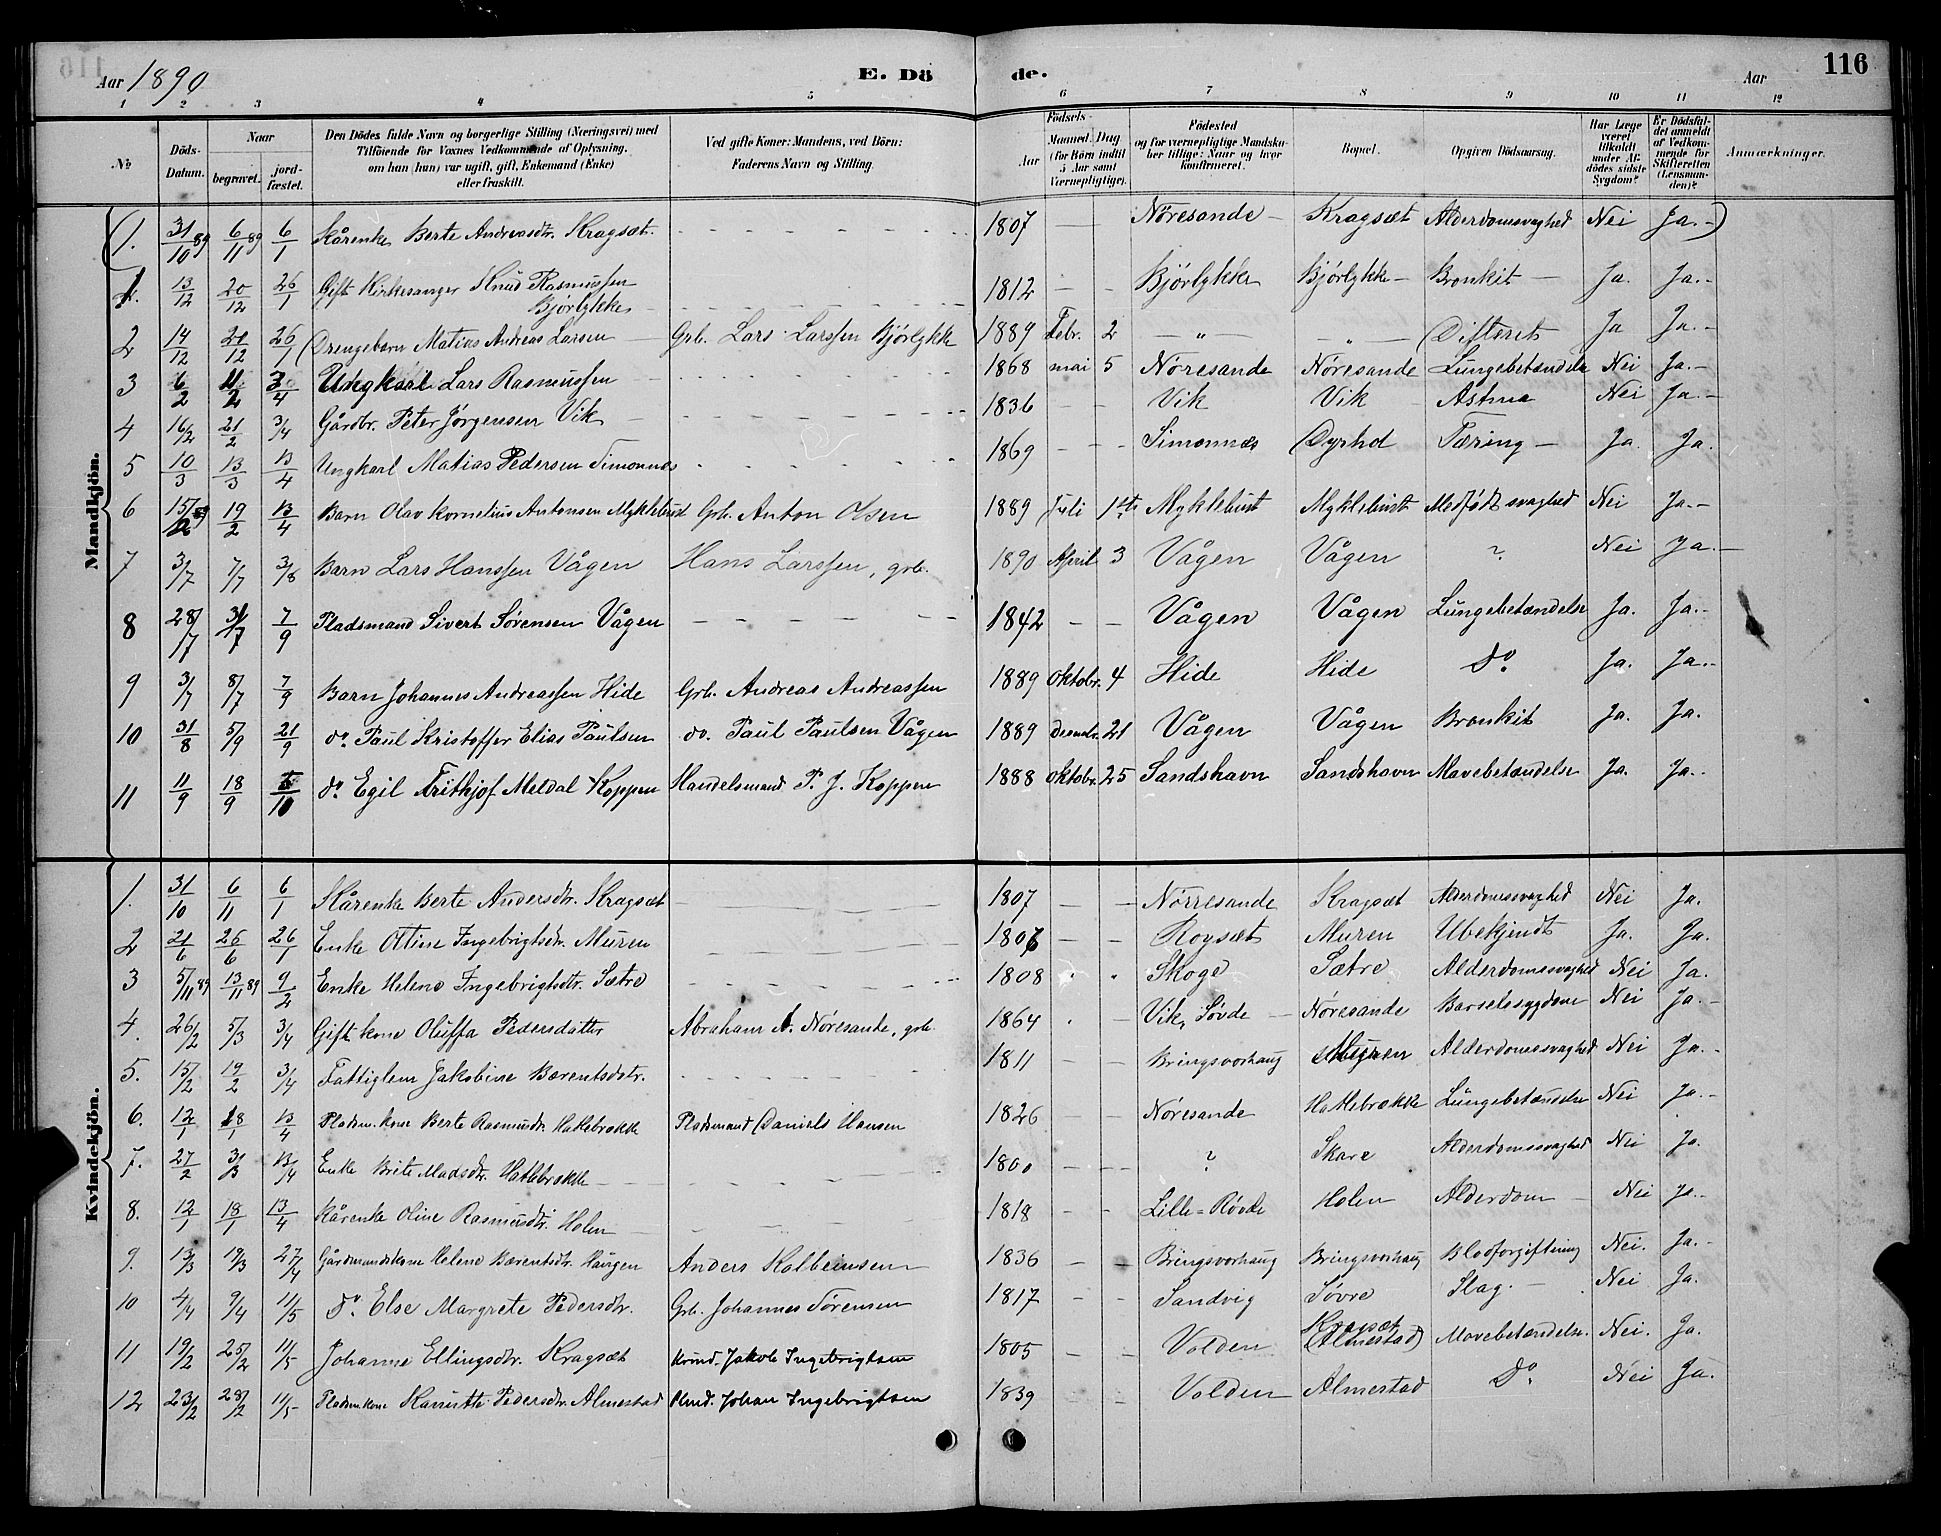 Aar 1890 E. Dö de. Aar 116
1 2 3 4 5 6 7 8 9 10 11 12
No Döds-Datum. Naar begravet. jord-fæstet. Den Dödes fulde Navn og borgerlige Stilling (Næringsvei) med Tilföiende for Voxnes Vedkommende af Oplysning, om han (hun) var ugift, gift, Enkemand (Enke) eller fraskilt. Ved gifte Koner: Mandens, ved Börn: Faderens Navn og Stilling. Födsels- Aar Maaned Dag (for Börn indtil 5 Aar samt Værnepligtige). Födested og for værnepligtige Mandskaber tillige: Naar og hvor konfirmeret. Bopæl. Opgiven Dödsaarsag. Har Læge været tilkaldt under Afdödes sidste Sygdom? Er Dödsfaldet anmeldt af Vedkommende for Skifteretten (Lensmanden)? Anmærkninger.
Mandkjön.
(1. 31/10 89 6/11 89 6/1 Kårenke Berte Andreasdtr. Kragsæt. 1807 Nöresande Kragsæt Alderdomssvaghed Nei Ja.-)
1. 13/12 20/12 26/1 Gift Kirkesanger Knud Rasmussen 1812 Bjørlykke Bjørlykke Bronkit Ja. Ja.-
Bjørlykke
2 14/12 20/12 26/1 Drengebarn Matias Andreas Larsen Grb. Lars Larssen Bjørlykke 1889 Febr. 2 " " Difterit Ja Ja.-
3 6/2 11/2 3/4 Ungkarl Lars Rasmussen 1868 mai 5 Nøresande Nøresande Lungebetændelse Nei Ja.-
4 16/2 21/2 3/4 Gårdbr. Peter Jørgensen Vik 1836 Vik Vik Astma Nei Ja.-
5 10/3 13/3 13/4 Ungkarl Matias Pedersen Simonnes 1869 Simonnæs Dyrhol Tæring Ja. Ja.
6 15/2 19/2 13/4 Barn Olav Kornelius Antonsen Myklebust Grb. Anton Olsen 1889 Juli 1ste Myklebust Myklebust Medfødt svaghed Nei Ja.-
7 3/7 7/7 3/8 Barn Lars Hanssen Vågen Hans Larssen, grb. 1890 April 3 Vågen Vågen ? Nei Ja.-
8 28/7 31/7 7/9 Pladsmand Sivert Sørensen Vågen 1842 Vågen Vågen Lungebetændelse Ja. Ja.-
9 3/7 8/7 7/9 Barn Johannes Andreassen Hide Grb. Andreas Andreassen 1889 Oktobr. 4 Hide Hide Do. Ja. Ja.-
10 31/8 5/9 21/9 do. Paul Kristoffer Elias Paulsen do. Paul Paulsen Vågen 1889 Decmbr. 21 Vågen Vågen Bronkit Ja. Ja.
11 11/9 18/9 5/10 do. Egil Frithjof Meldal Koppen Handelsmand P. J. Koppen 1888 Oktobr. 25 Sandshavn Sandshavn Mavebetændelse Ja. Ja.
Kvindekjön.
1. 31/10 6/11 6/1 Kårenke Berte Andersdtr. Kragsæt 1807 Nørresande Kragsæt Alderdomssvaghed Nei Ja.
2 21/6 26/6 26/1 Enke Oline Ingebrigtsdtr. Muren 1806 Koysæt Muren Ubekjendt Ja. Ja.
3 5/11 89 13/11 89 9/2 Enke Helene Ingebrigtsdtr. Sætre 1808 Skoge Sætre Alderdomssvaghed Nei Ja.
4. 26/2 5/3 3/4 Gift kone Oluffa Pedersdatter Abraham A. Nøresande, grb. 1864 Vik, Søvde Nøresande Barselssygdom Nei Ja.-
5. 15/2 19/2 3/4 Fattiglem Jakobine Bærentsdtr. 1811 Bringsvorhaug Alderdomssvaghed Nei Ja.-
6. 12/1 18/1 13/4 Pladsm. kone Berte Rasmusdtr. Hatlebrække Pladsmand Daniels Hansen 1826 Nøresande Hatlebrække Lungebetændelse Nei Ja.-
7. 27/2 3/3 13/4 Enke Brite Madsdtr. Hatlebrække 1800 ? Skare Alderdomssvaghed Nei Ja.
8. 12/1 18/1 13/4 Kårenke Oline Rasmusdtr. Holen 1818 Lille-Røvde Holen Alderdom Nei Ja.-
9. 13/3 19/3 27/4 Gårdmandskone Helene Bærentsdtr. Haugen Anders Kolbeinsen 1836 Bringsvorhaug Bringsvorhaug Blodforgiftning Nei. Ja.-
10 4/4 9/4 11/5 do. Else Margrete Pedersdtr. Grb. Johannes Sørensen 1817 Sandvig Søvre Slag. Nei Ja.
11 19/2 25/2 11/5 Johanne Ellingsdtr. Kragsæt Jakob Ingebrigtsen 1805 Volden Kragsæt (Almestad) Mavebetændelse. Nei. Ja.
12 23/2 28/2 11/5 Pladsmkone Hanutte Pedersdtr. Almestad Johan Ingebrigtsen 1839 Volden Almestad Do. Nei Ja.